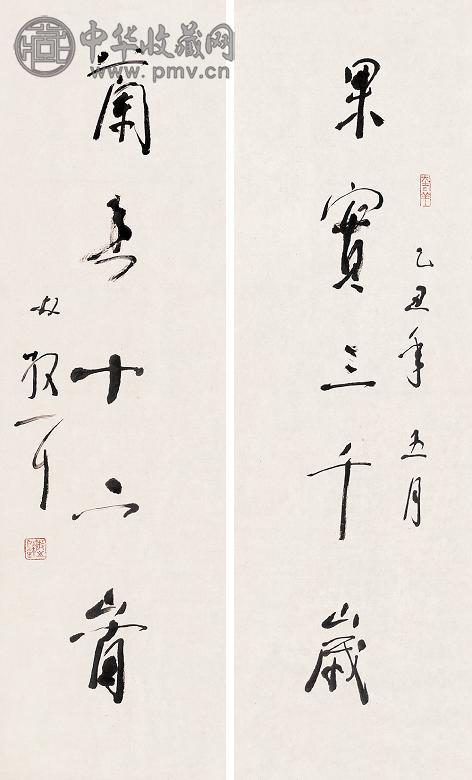 中华收藏网
www.pmv.cn
果實三千歲
乙丑年五月
蘭香十二
林散耳